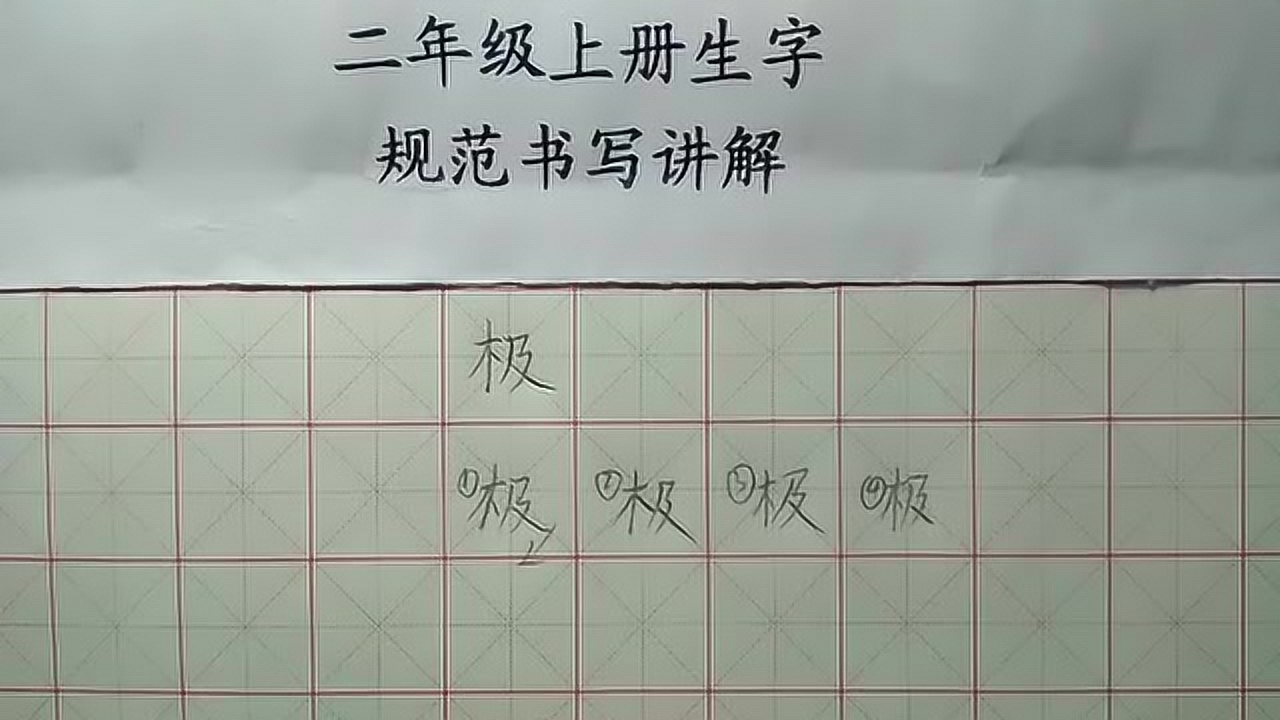 二年级上册生字
规范书写讲解
极
①极 ②极 ③极 ④极